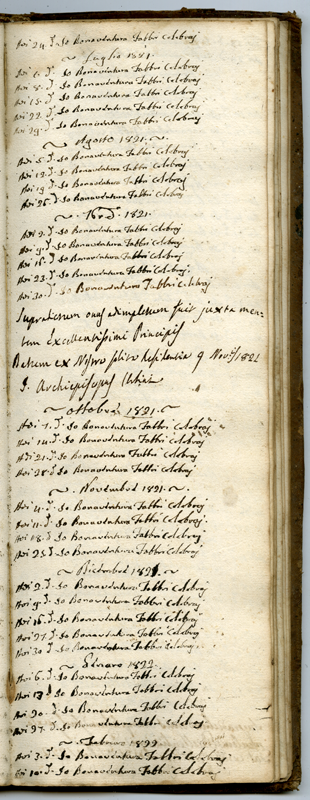 Adi 24. d.º Io Bonaventura Fabbri Celebraj
~ Luglio 1821.
Adi 1. d.º Io Bonaventura Fabbri Celebraj
Adi 8. d.º Io Bonaventura Fabbri Celebraj
Adi 15. d.º Io Bonaventura Fabbri Celebraj
Adi 22. d.º Io Bonaventura Fabbri Celebraj
Adi 29. d.º Io Bonaventura Fabbri Celebraj
~ Agosto 1821. ~
Adi 5. d.º Io Bonaventura Fabbri Celebraj
Adi 12. d.º Io Bonaventura Fabbri Celebraj
Adi 19. d.º Io Bonaventura Fabbri Celebraj
Adi 26. d.º Io Bonaventura Fabbri Celebraj
~ 1821.
Adi 2. d.º Io Bonaventura Fabbri Celebraj
Adi 9. d.º Io Bonaventura Fabbri Celebraj
Adi 16. d.º Io Bonaventura Fabbri Celebraj
Adi 23. d.º Io Bonaventura Fabbri Celebraj
Adi 30. d.º Io Bonaventura Fabbri Celebraj
Suprascriptum onus adimpletum fuit juxta men-
tem Excellentissimi Principis
Datum ex Nostra solita Residentia 9 Nov. 1821
J. Archiepiscopus
~ Ottobre 1821. ~
Adi 7. d.º Io Bonaventura Fabbri Celebraj
Adi 14. d.º Io Bonaventura Fabbri Celebraj
Adi 21. d.º Io Bonaventura Fabbri Celebraj
Adi 28. d.º Io Bonaventura Fabbri Celebraj
~ Novembre 1821. ~
Adi 4. d.º Io Bonaventura Fabbri Celebraj
Adi 11. d.º Io Bonaventura Fabbri Celebraj
Adi 18. d.º Io Bonaventura Fabbri Celebraj
Adi 25. d.º Io Bonaventura Fabbri Celebraj
~ Dicembre 1821. ~
Adi 2. d.º Io Bonaventura Fabbri Celebraj
Adi 9. d.º Io Bonaventura Fabbri Celebraj
Adi 16. d.º Io Bonaventura Fabbri Celebraj
Adi 23. d.º Io Bonaventura Fabbri Celebraj
Adi 30. d.º Io Bonaventura Fabbri Celebraj
~ Genaro 1822.
Adi 6. d.º Io Bonaventura Fabbri Celebraj
Adi 13. d.º Io Bonaventura Fabbri Celebraj
Adi 20. d.º Io Bonaventura Fabbri Celebraj
Adi 27. d.º Io Bonaventura Fabbri Celebraj
~ Febraro 1822
Adi 3. d.º Io Bonaventura Fabbri Celebraj
Adi 10. d.º Io Bonaventura Fabbri Celebraj